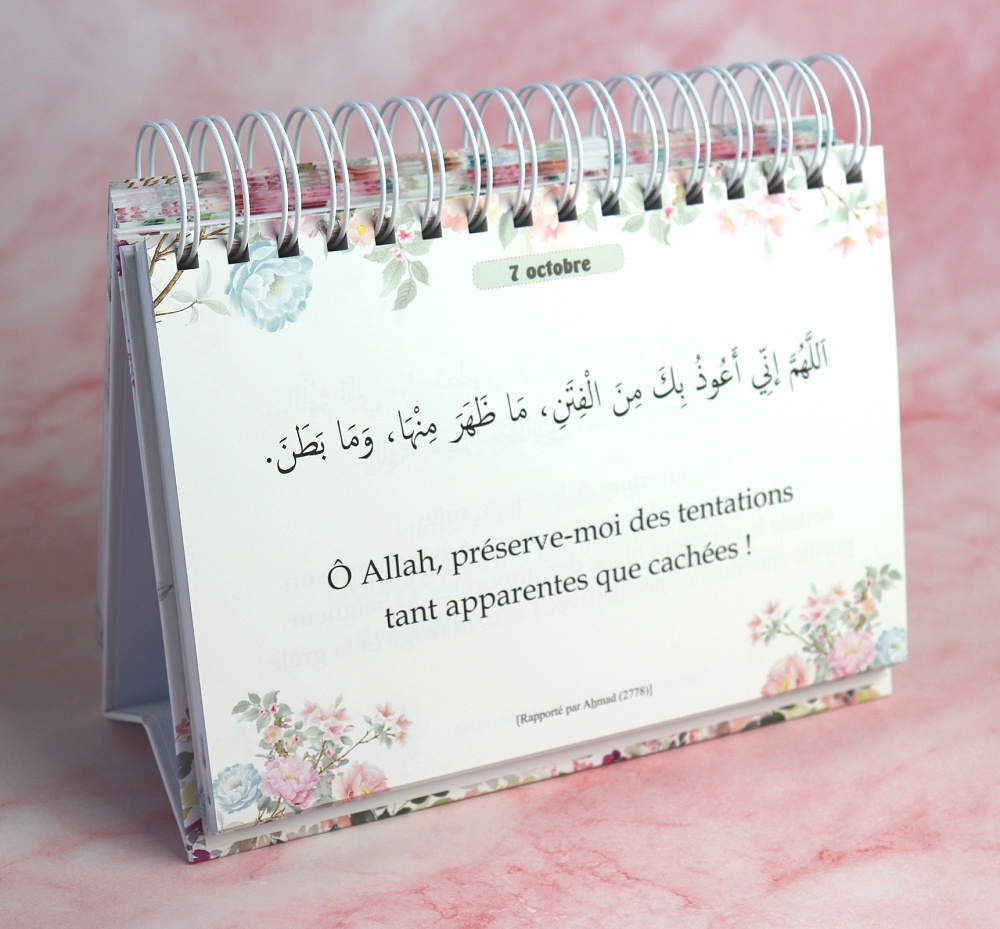 7 octobre
اَللَّهُمَّ إِنِّي أَعُوذُ بِكَ مِنَ الْفِتَنِ، مَا ظَهَرَ مِنْهَا، وَمَا بَطَنَ.
Ô Allah, préserve-moi des tentations
tant apparentes que cachées !
[Rapporté par Aḥmad (2778)]